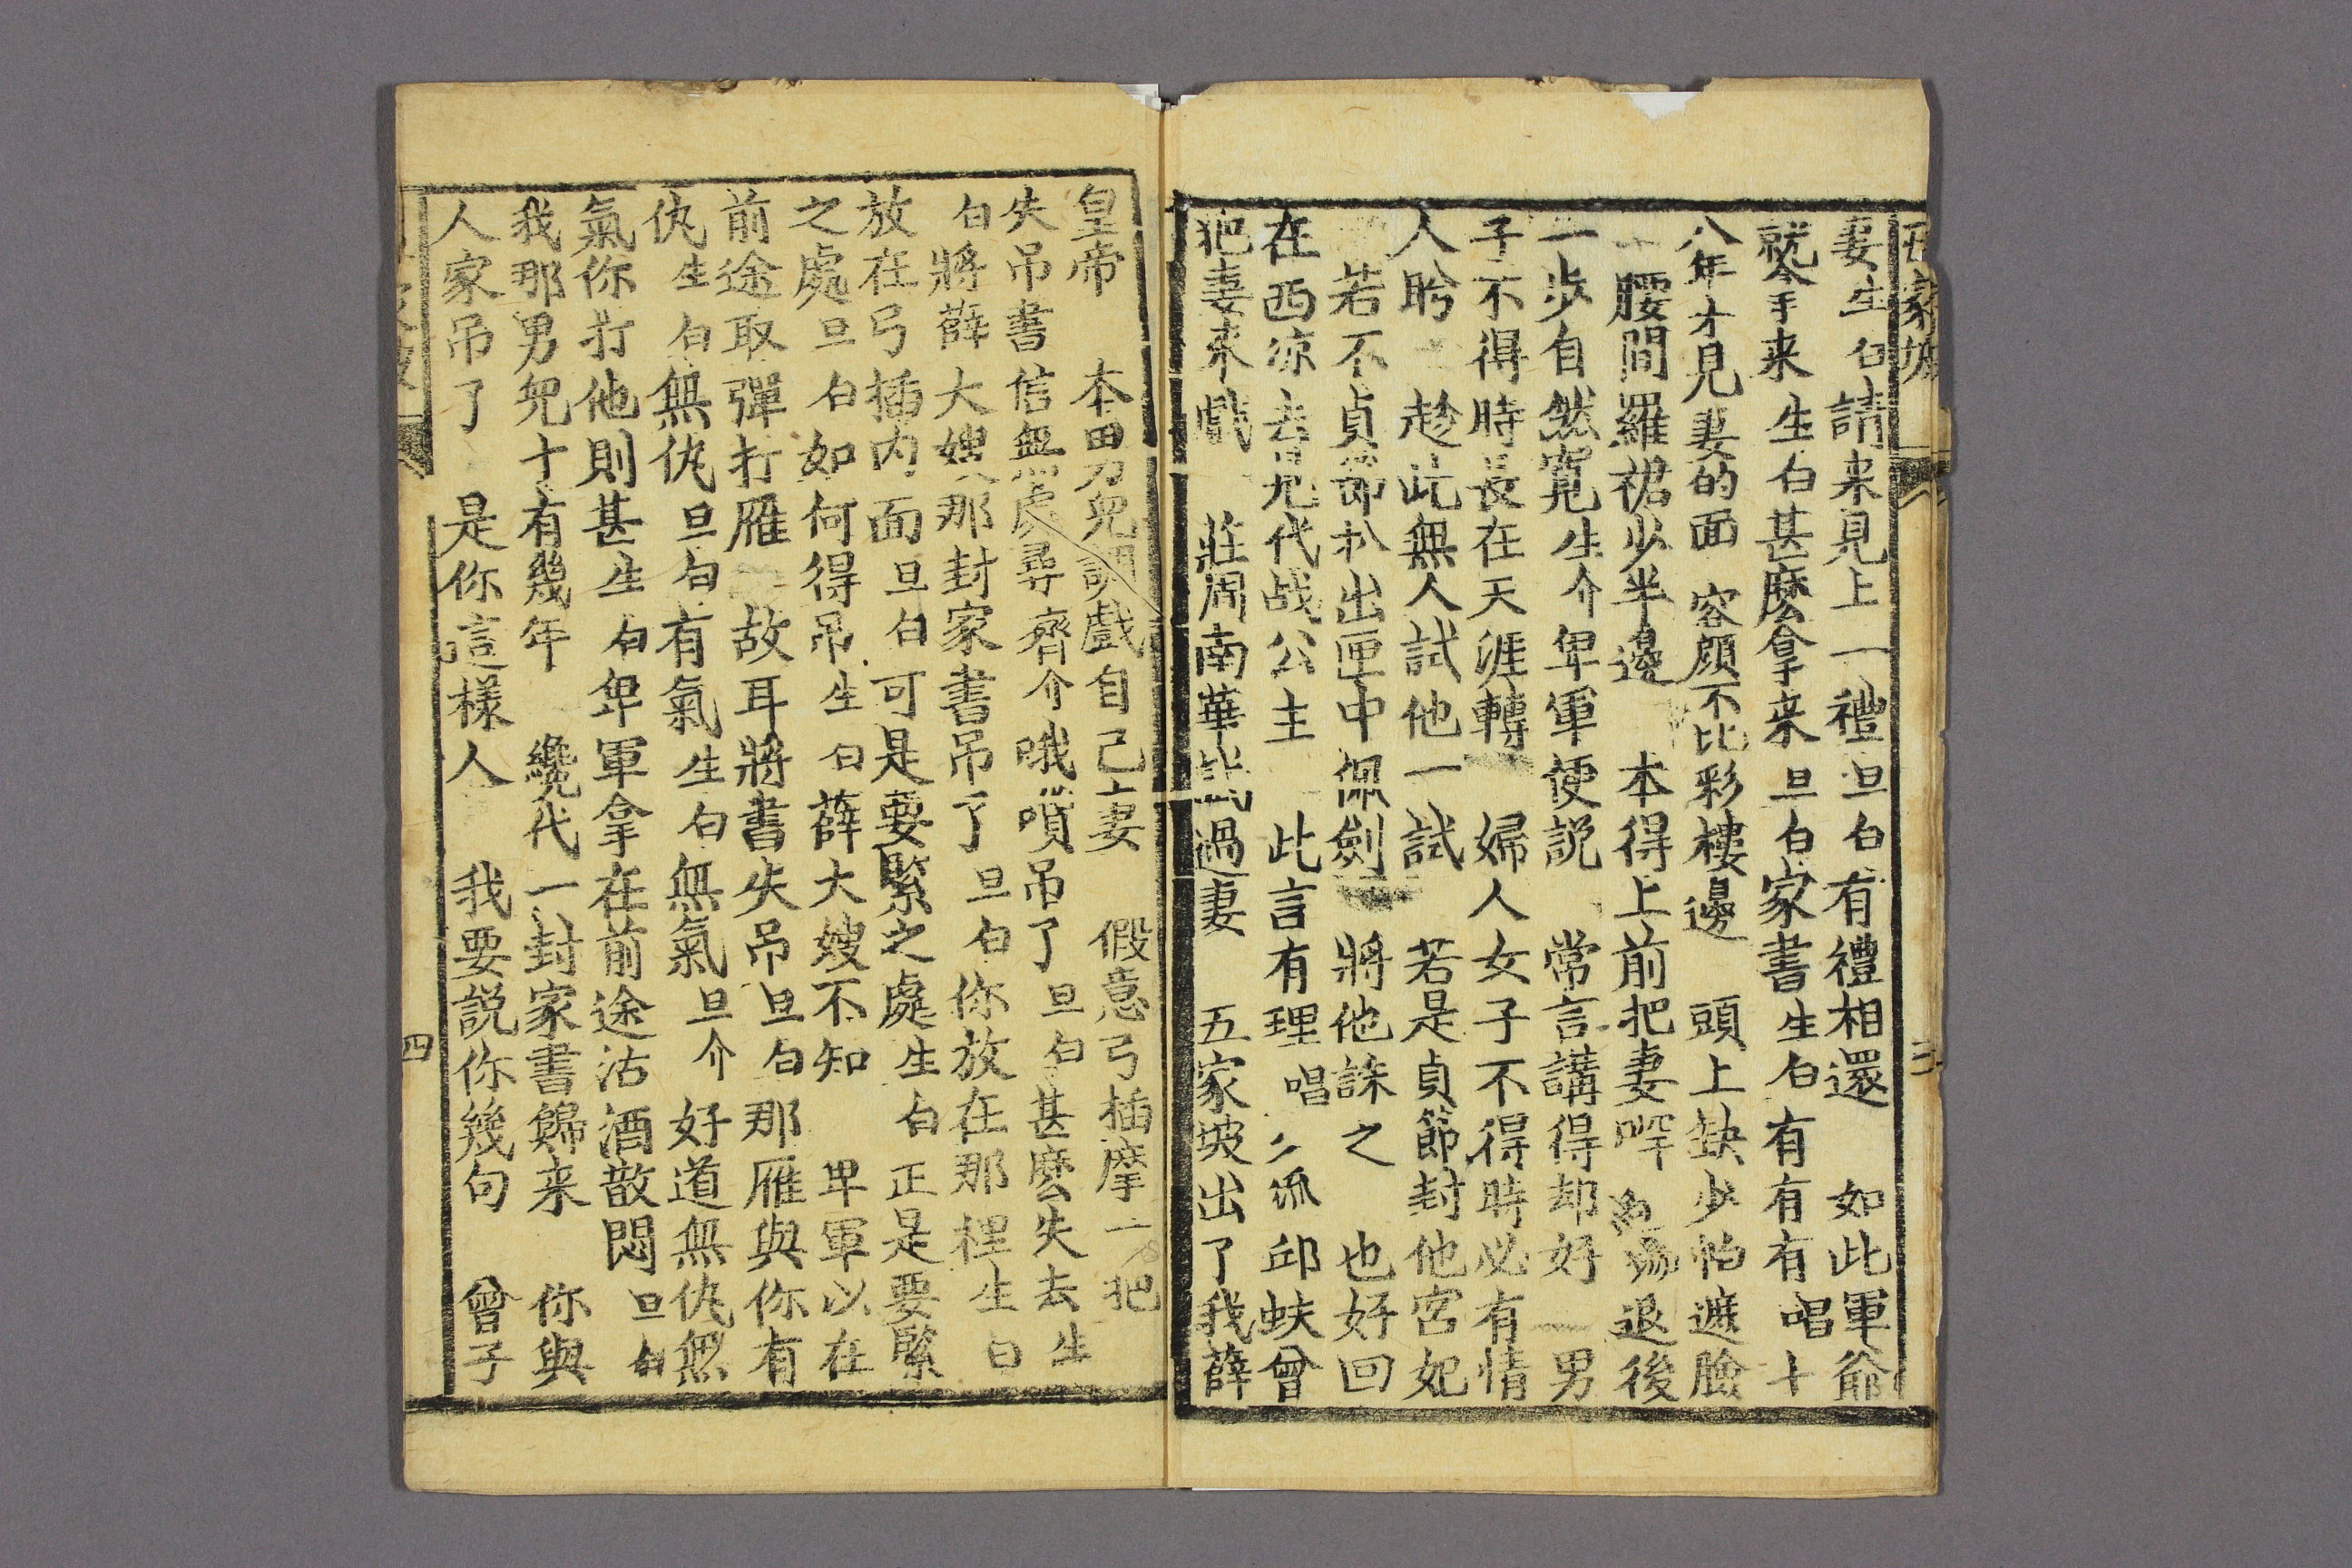 五家坡
妻生白請来見上一禮旦白有禮相還　如此軍爺
就念手来生白甚麽拿来旦白家書生白有有有唱十
八年才見妻的面　容顔不比彩樓邊　頭上缺少怕遮臉
腰間羅裙少半邊　本得上前把妻　退後
一步自然寛生介卑軍便説　常言講得却好　男
子不得時長在天涯轉　婦人女子不得時必有情
人盻　趁此無人試他一試　若是貞節封他宮妃
若不貞節扒出匣中佩劍　將他誅之　也好回
在西凉去見代战公主　此言有理唱　邱蚨曾
把妻来戲　莊周南華過妻　五家坡出了我薛
皇帝　本男兒調戲自己妻　假意弓插摩一把
失吊書信無處尋齊介哦噴吊了旦白甚麽失去生
白將薛大嫂那封家書吊了旦白你放在那裡生白
放在弓插内面旦白可是要緊之處生白正是要緊
之處旦白如何得吊生白薛大嫂不知　卑軍以在
前途取彈打雁　故耳將書失吊旦白那雁與你有
仇生白無仇旦白有氣生白無氣旦介好道無仇無
氣你打他則甚生白卑軍拿在前途沽酒散悶旦白
我那男兒十有幾年　纔代一封家書歸来　你與
人家吊了　是你這樣人　我要説你幾句　曾子
四